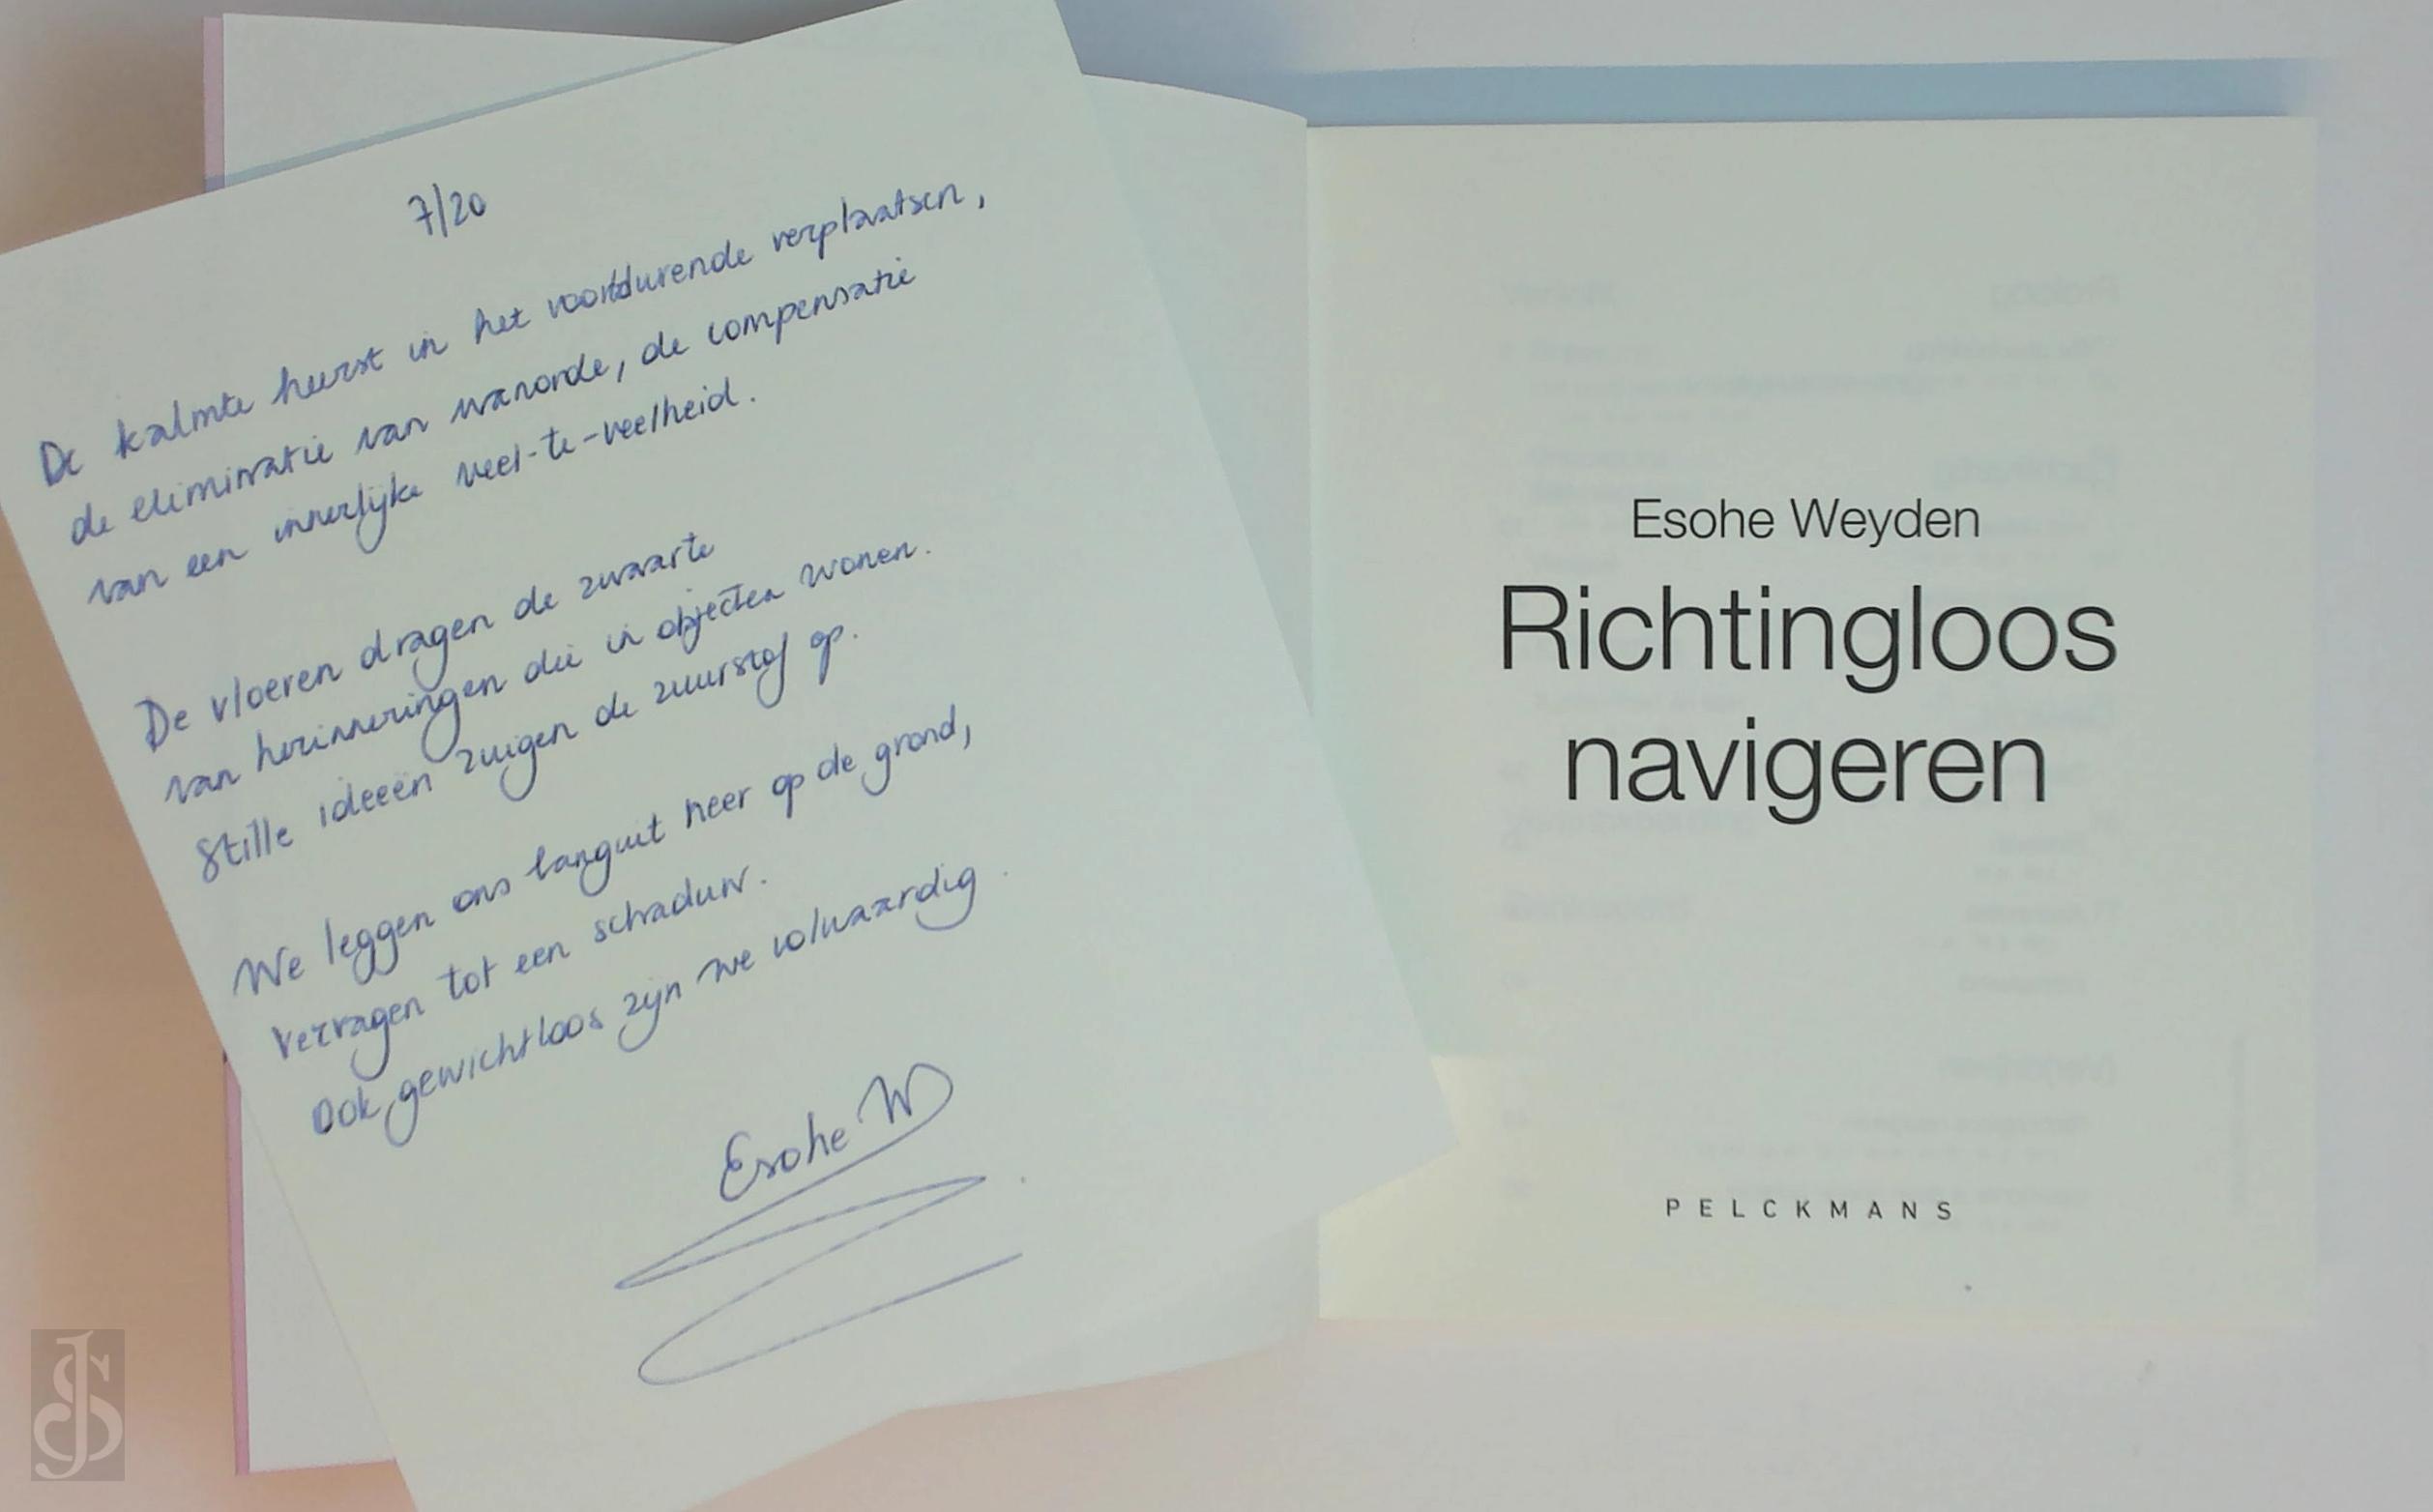 7/20
De kalmte heerst in het voortdurende verplaatsen,
de eliminatie van wanorde, de compensatie
van een innerlijke veel-te-veelheid.
De vloeren dragen de zwaarte
van herinneringen die in objecten wonen.
Stille ideeën zuigen de zuurstof op.
We leggen ons languit neer op de grond,
vervagen tot een schaduw.
Ook gewichtloos zijn we volwaardig.
Esohe W
Esohe Weyden
Richtingloos
navigeren
PELCKMANS